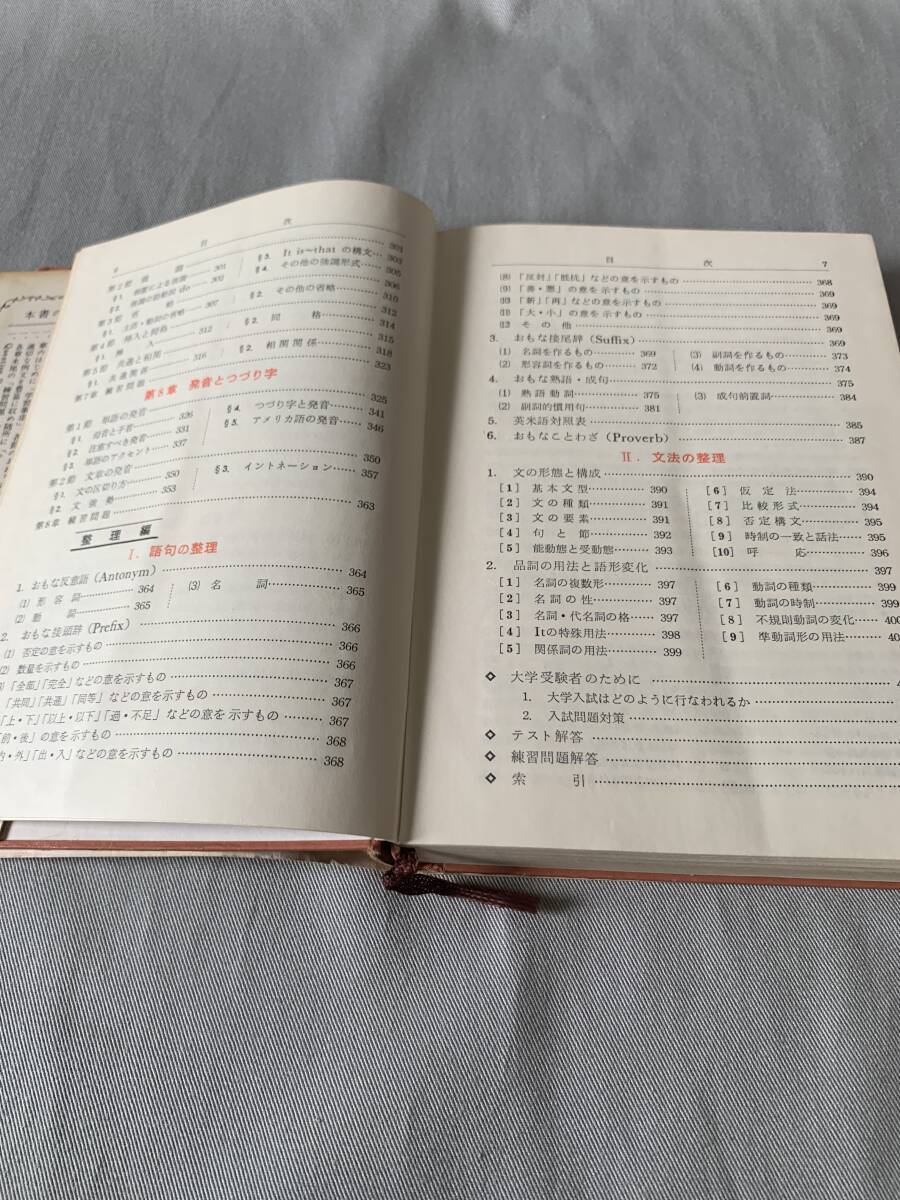 本書の
6 目次
第2節 強調 301
§1. 倒置による強調 301
§2. 強調の助動詞 do 303
§3. It is~that の構文 303
§4. その他の強調形式 305
第3節 省略 306
§1. 主語・動詞の省略 307
§2. その他の省略 310
第4節 挿入と同格 312
§1. 挿入 312
§2. 同格 314
第5節 共通と相関 315
§1. 共通関係 316
§2. 相関関係 318
第7章 練習問題 323
第8章 発音とつづり字 325
第1節 単語の発音 326
§1. 母音と子音 326
§2. 注意すべき発音 331
§3. 単語のアクセント 337
§4. つづり字と発音 341
§5. アメリカ語の発音 346
第2節 文章の発音 350
§1. 文の区切り方 350
§2. 文強勢 353
§3. イントネーション 357
第8章 練習問題 363
整理編
I. 語句の整理
1. おもな反意語 (Antonym) 364
(1) 形容詞 364
(2) 動詞 365
(3) 名詞 365
2. おもな接頭辞 (Prefix) 366
(1) 否定の意を示すもの 366
(2) 数量を示すもの 366
「全部」「完全」などの意を示すもの 367
「共同」「共通」「同等」などの意を示すもの 367
「上・下」「以上・以下」「過・不足」などの意を示すもの 367
「前・後」の意を示すもの 368
「内・外」「出・入」などの意を示すもの 368
目次 7
(8) 「反対」「抵抗」などの意を示すもの 368
(9) 「善・悪」の意を示すもの 368
(10) 「新」「再」などの意を示すもの
(11) 「大・小」の意を示すもの
(12) その他 369
3. おもな接尾辞 (Suffix) 369
(1) 名詞を作るもの 369
(2) 形容詞を作るもの 372
(3) 副詞を作るもの 373
(4) 動詞を作るもの 374
4. おもな熟語・成句 375
(1) 熟語動詞 375
(2) 副詞的慣用句 381
(3) 成句前置詞 384
5. 英米語対照表 385
6. おもなことわざ (Proverb) 387
II. 文法の整理
1. 文の形態と構成 390
[1] 基本文型 390
[2] 文の種類 391
[3] 文の要素 391
[4] 句と節 392
[5] 能動態と受動態 393
[6] 仮定法 394
[7] 比較形式 394
[8] 否定構文 395
[9] 時制の一致と話法 395
[10] 呼応 396
2. 品詞の用法と語形変化 397
[1] 名詞の複数形 397
[2] 名詞の性 397
[3] 名詞・代名詞の格 397
[4] Itの特殊用法 398
[5] 関係詞の用法 399
[6] 動詞の種類 399
[7] 動詞の時制
[8] 不規則動詞の変化 400
[9] 準動詞形の用法 40
◇ 大学受験者のために 4
1. 大学入試はどのように行なわれるか
2. 入試問題対策
◇ テスト解答
◇ 練習問題解答
◇ 索引